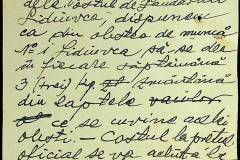 dele Postul de Jandarmi
Lidiuvca, dispunem
ca din obștea de muncă
No 1 Lidiuvca să se dea
în fiecare săptămână
3 (trei) kg. smântână
din laptele vacilor
ce se cuvine acelei
obști. — Costul la prețul
oficial se va achita la